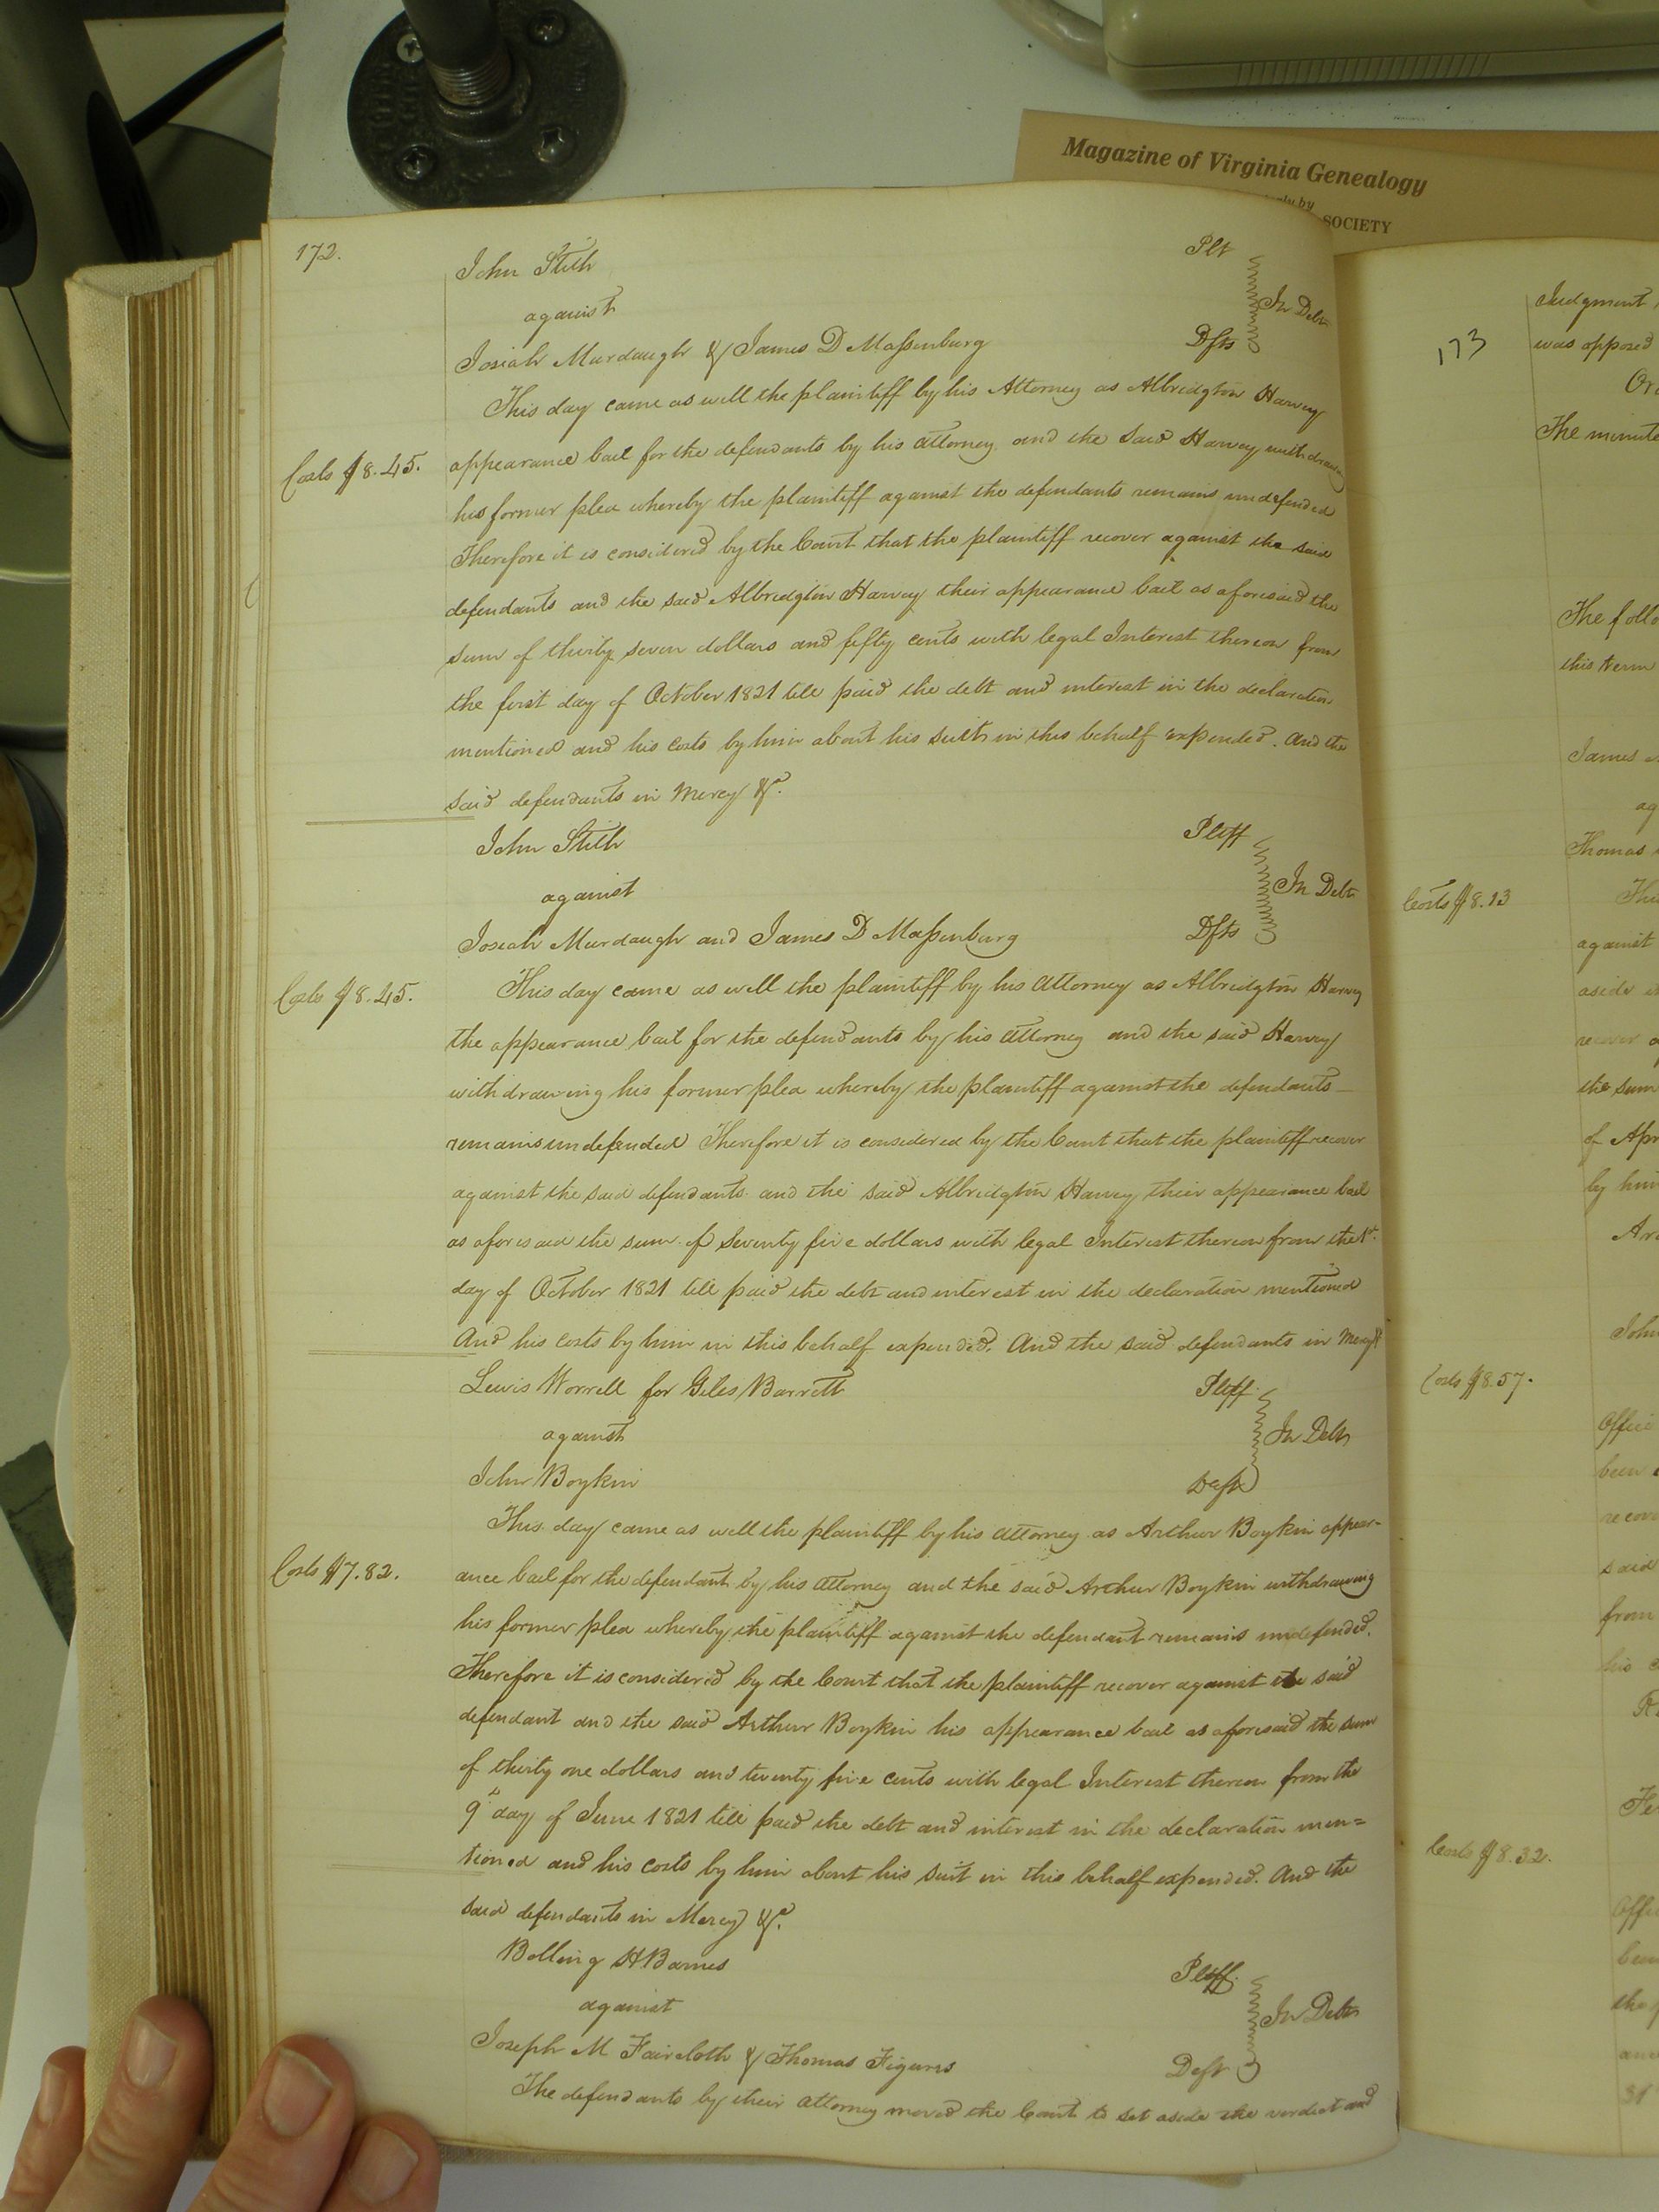 Magazine of Virginia Genealogy
SOCIETY
172.
John Stith Plt
against In Debt
Josiah Murdaugh & James D Massenburg Dfts
This day came as well the plaintiff by his Attorney as Albridgton Harvey
Costs $8.45. appearance bail for the defendants by his attorney, and the said Harvey withdrawing
his former plea whereby the plaintiff against the defendants remains undefended
Therefore it is considered by the Court that the plaintiff recover against the said
defendants and the said Albridgton Harvey their appearance bail as aforesaid the
sum of thirty seven dollars and fifty cents with legal Interest thereon from
the first day of October 1821 till paid the debt and interest in the declaration
mentioned and his costs by him about his suit in this behalf expended. And the
said defendants in Mercy &c.
John Stith Pltff
against In Debt
Josiah Murdaugh and James D Massenburg Dfts
Costs $8.45. This day came as well the plaintiff by his attorney as Albridgton Harvey
the appearance bail for the defendants by his attorney and the said Harvey
withdrawing his former plea whereby the plaintiff against the defendants
remains undefended Therefore it is considered by the Court that the plaintiff recover
against the said defendants and the said Albridgton Harvey their appearance bail
as aforesaid the sum of Seventy five dollars with legal Interest thereon from the 1st.
day of October 1821 till paid the debt and interest in the declaration mentioned
And his costs by him in this behalf expended. And the said defendants in Mercy &
Lewis Worrell for Giles Barrett Pltff
against In Debt
John Boykin Deft
This day came as well the plaintiff by his attorney as Arthur Boykin appear-
Costs $7.82. ance bail for the defendant by his attorney and the said Arthur Boykin withdrawing
his former plea whereby the plaintiff against the defendant remains undefended.
Therefore it is considered by the Court that the plaintiff recover against the said
defendant and the said Arthur Boykin his appearance bail as aforesaid the sum
of thirty one dollars and twenty five cents with legal Interest thereon from the
9th day of June 1821 till paid the debt and interest in the declaration men=
tioned and his costs by him about his suit in this behalf expended. And the
said defendants in Mercy &c.
Bolling H Barnes Pltff.
against In Debt
Joseph M Faircloth & Thomas Figures Deft
The defendants by their attorney moved the Court to set aside the verdict and
173
Judgment
was opposed
The minute
The follo
this term
James
ag
Thomas
Costs $8.13 The
against
aside
recover
the sum
of Apr
by him
John
Costs $8.57.
Office
been
recov
said
from
his
Costs $8.32.
Offi
been
the
and
31